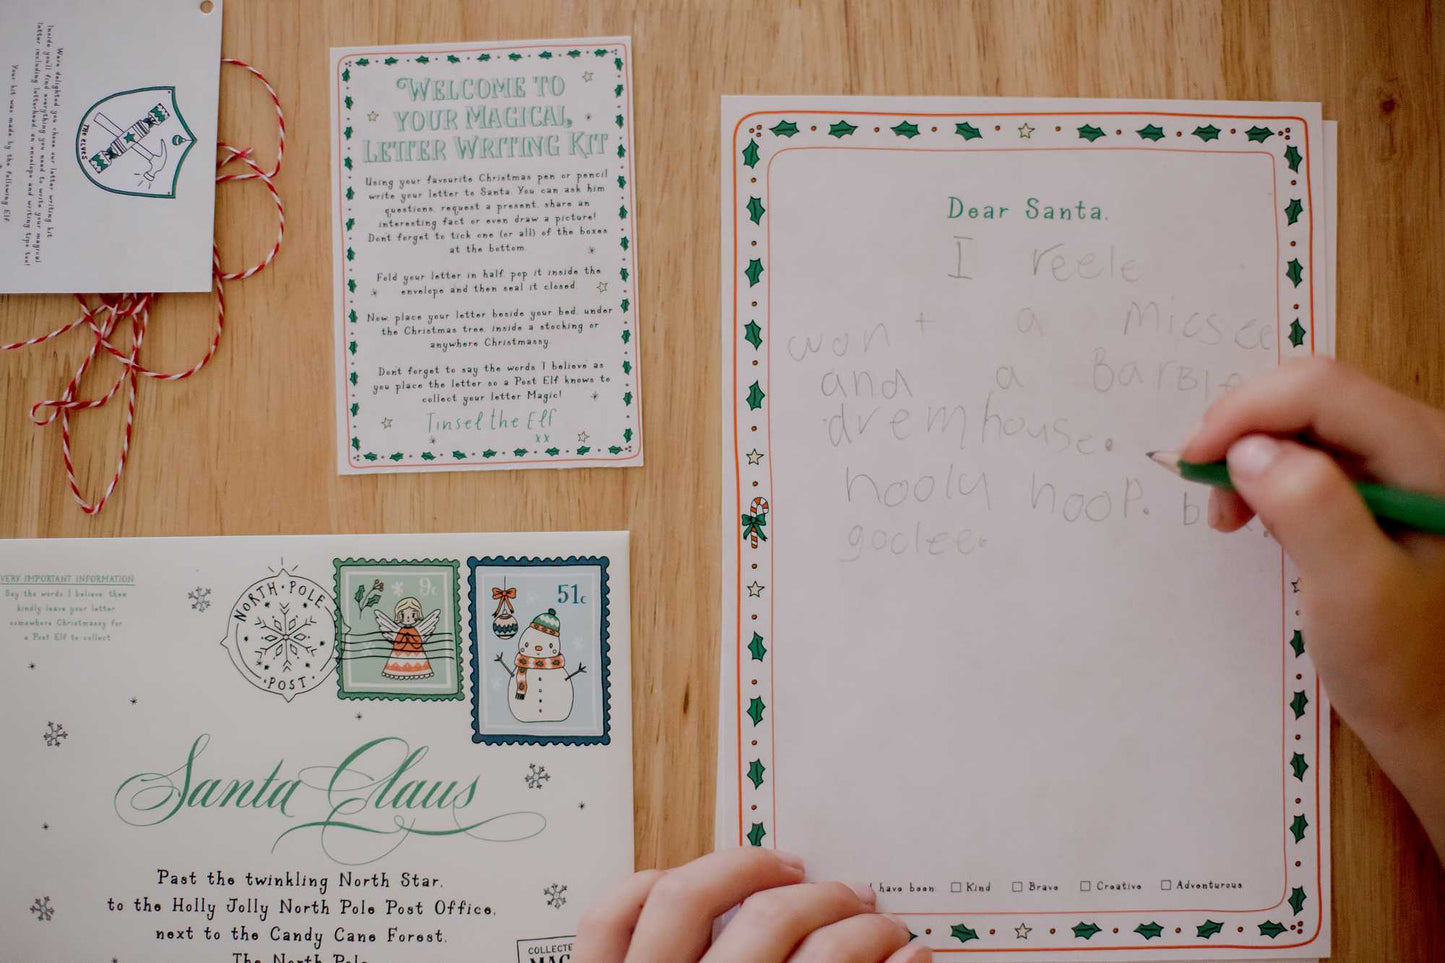 Were delighted you chose our letter writing kit
Inside you'll find everything you need to write your magical
letter including letterhead, an envelope and writing tips too!
Your kit was made by the following Elf
THE ELVES
WELCOME TO
YOUR MAGICAL
LETTER WRITING KIT
Using your favourite Christmas pen or pencil
write your letter to Santa. You can ask him
questions, request a present, share an
interesting fact or even draw a picture!
Dont forget to tick one (or all) of the boxes
at the bottom.
Fold your letter in half, pop it inside the
envelope and then seal it closed
Now, place your letter beside your bed, under
the Christmas tree, inside a stocking or
anywhere Christmassy.
Dont forget to say the words 'I believe' as
you place the letter so a Post Elf knows to
collect your letter Magic!
Tinsel the Elf
xx
Dear Santa,
I reele
wont a
and a Barbie
dremhouse.
hooly hoop.
goclee.
I have been: Kind Brave Creative Adventurous
VERY IMPORTANT INFORMATION
Say the words I believe then
kindly leave your letter
somewhere Christmassy for
a Post Elf to collect
NORTH • POLE
• POST •
9c
51c
Santa Claus
Past the twinkling North Star,
to the Holly Jolly North Pole Post Office,
next to the Candy Cane Forest,
The North Pole